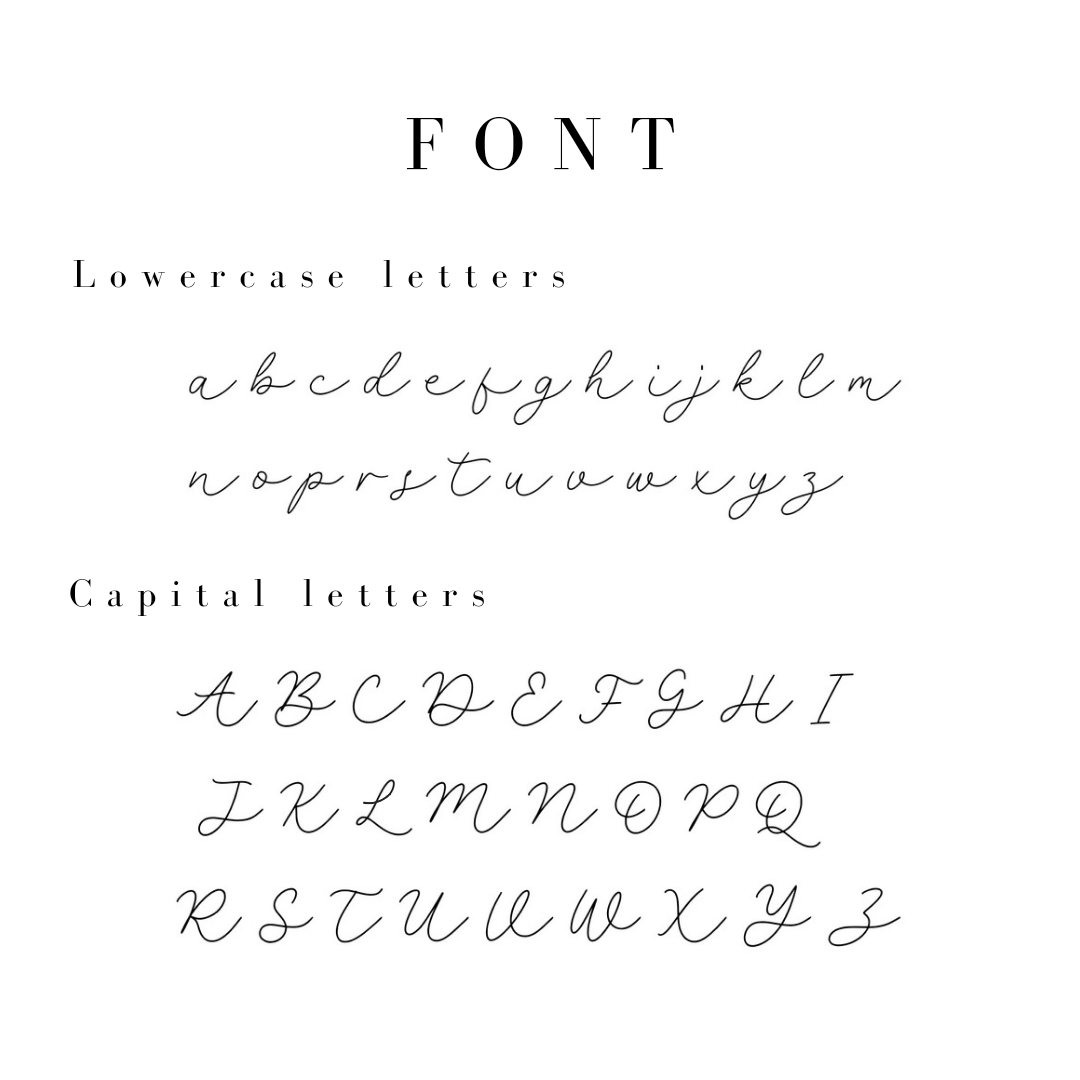 FONT
Lowercase letters
a b c d e f g h i j k l m
n o p r s t u v w x y z
Capital letters
A B C D E F G H I
J K L M N O P Q
R S T U V W X Y Z